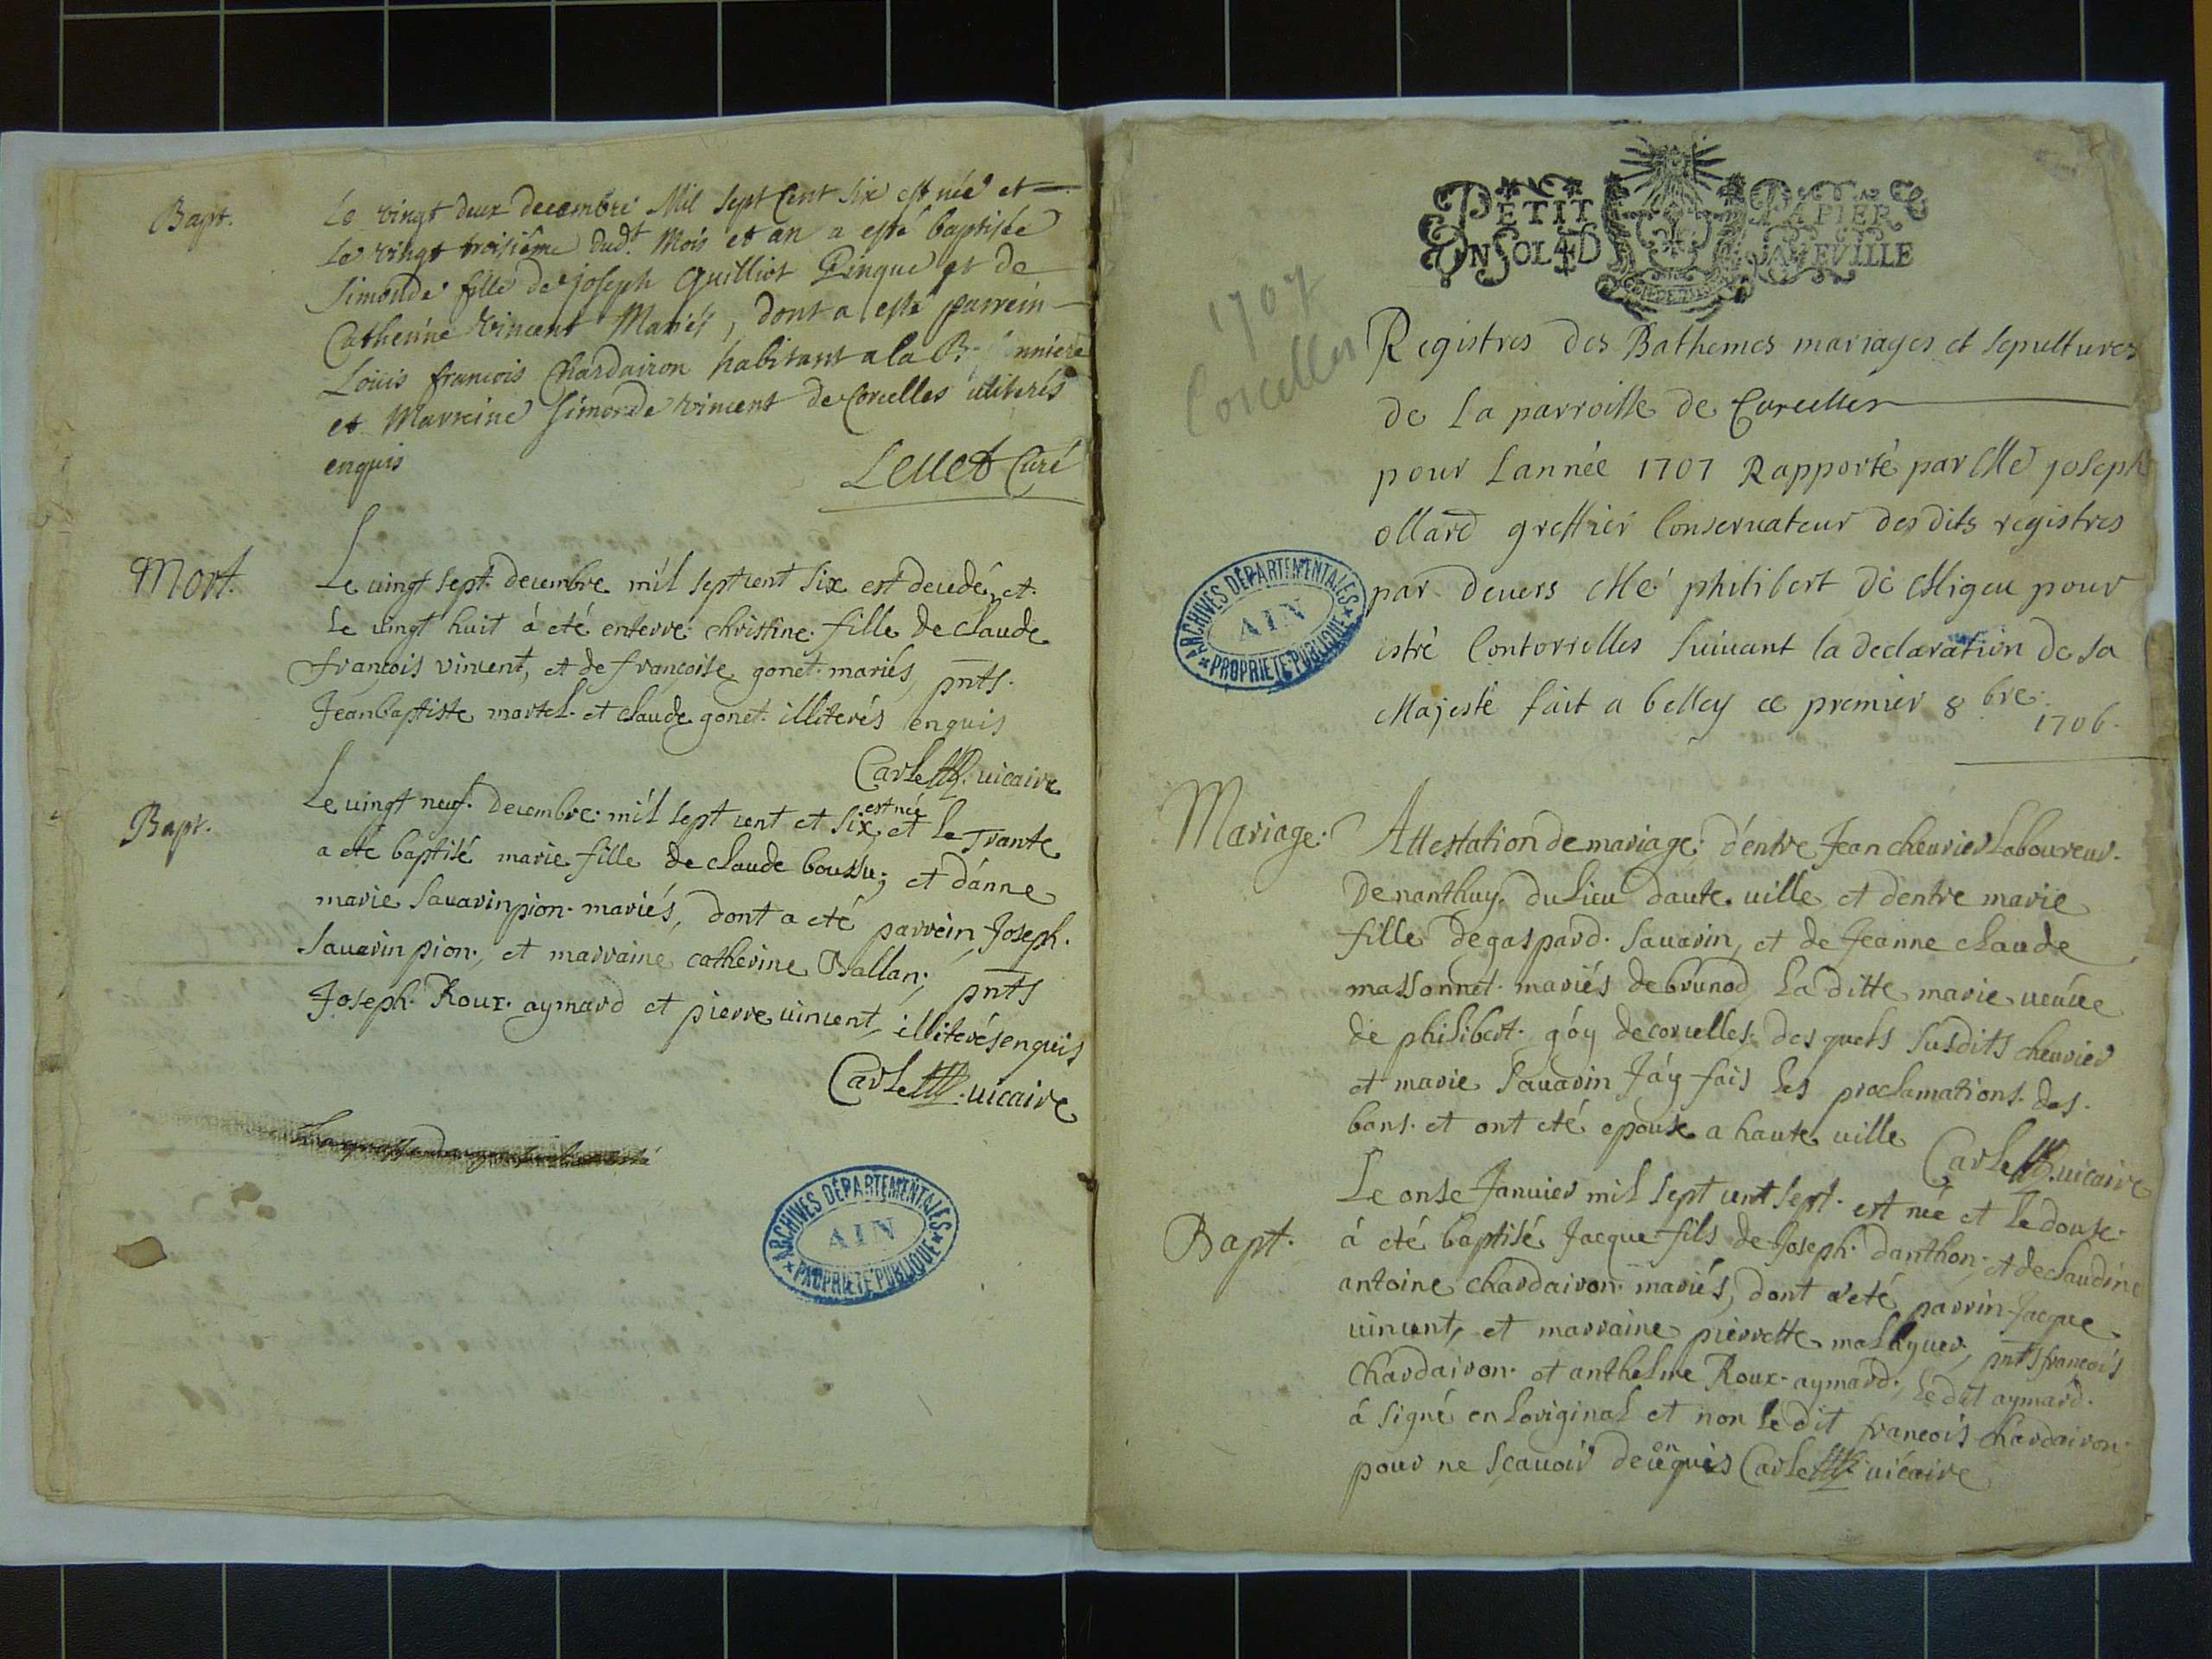 Bapt.
Le vingt deux decembre Mil sept Cent six est née et
Le vingt troisiême dud.t Mois et an a esté baptisée
Simonde fille de Joseph Guilliot Pingue et de
Catherine Vincent Mariés, dont a esté parrein
Loüis francois Chardairon habitant a la
et Marreine Simonde vincent de Corcelles illiterés
enquis
Leuet Curé
Mort.
Le uingt sept. decembre mil sept cent six est decedé, et.
Le uingt huit à eté enterré christine. fille de claude
françois vincent, et de françoise gonet. mariés, pnts.
Jeanbaptiste martel. et claude gonet. illiterés enquis
Carlett. uicaire
Bapt.
Le uingt neuf. decembre. mil sept cent et six, est née et le Trante
a eté baptisé marie fille de claude boussu; et d'anne
marie Sauarinpion. mariés, dont a eté parrein, Joseph.
Sauarin pion., et marraine catherine Ballan; pnts
Joseph. Roux. aymard et pierre uincent, illiterés enquis
Carlett. uicaire
ARCHIVES DÉPARTEMENTALES
AIN
PROPRIÉTÉ PUBLIQUE
PETIT PAPIER
UN SOL 4 D LA FEVILLE
1707
Corcelles
Registres des Bathemes mariages et sepultures
de la parroisse de Corcelles
pour Lannée 1707 Rapporté par Me joseph
ollard greffier Conseruateur des dits registres
par deuers Me philibert de Migeu pour
estre Contorrolles suiuant la declaration de sa
Majesté fait a belley ce premier 8 bre.
1706.
ARCHIVES DÉPARTEMENTALES
AIN
PROPRIÉTÉ PUBLIQUE
Mariage.
Attestation de mariage. d'entre Jean cheurier Laboureur.
De nanthuy. du Lieu daute.uille et dentre marie
fille de gaspard. Sauarin, et de Jeanne claude
massonnet. mariés de brunod La ditte marie ueúue
de philibert. góy de corcelles. des quels susdits cheurier
et marie Sauarin J'ay fais les proclamations. des.
bans. et ont eté epouse a haute uille Carlett. uicaire
Bapt.
Le onse Januier mil sept cent sept. est née et Le douse.
á eté baptisé Jacque fils de Joseph. danthon; et de claudine
antoine chardairon. mariés, dont a eté parrin Jacque
uincent, et marraine pierrette mallyuer, pnts francois
Chardairon. et anthelme Roux-aymard., le dit aymard.
á signé en L'original et non le dit francois Chardairon.
pour ne scauoir de ce enquis Carlett. uicaire